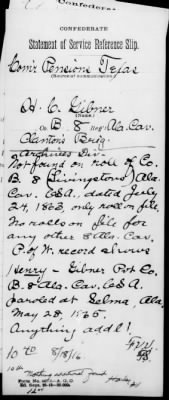 CONFEDERATE
Statement of Service Reference Slip.
Com'r Pensions Texas
(Source of communication.)
H. C. Gibner
(Name.)
Co. B. 8 Reg't Ala. Cav.
Clanton's Brig.
Archives Div.
Not found on Roll of Co.
B. 8 (Livingston's) Ala.
Cav. C.S.A., dated July
24, 1863, only roll on file.
No rolls on file for
any other 8 Ala. Cav.
P. of W. record shows
Henry – Gibner Pvt Co.
B. 8 Ala. Cav. C.S.A.
paroled at Selma, Ala.
May 28, 1865.
Anything add'l!
8/18/16
Nothing additional found